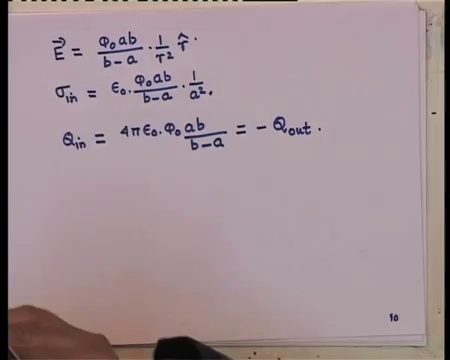 E⃗ = φ₀ab/(b-a) · 1/r² r̂ .
σin = ε₀ . φ₀ab/(b-a) · 1/a² .
Qin = 4πε₀ . φ₀ab/(b-a) = - Qout .
10